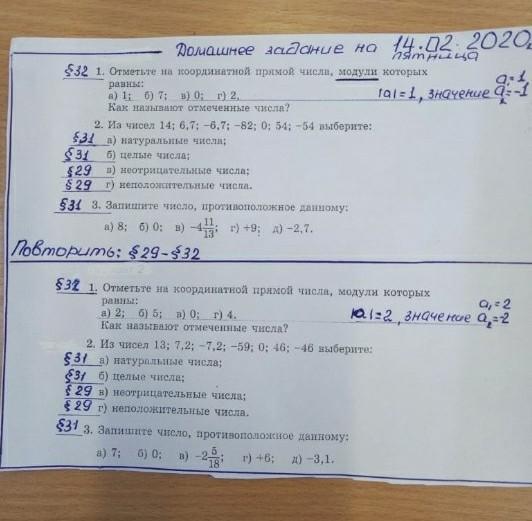 Домашнее задание на 14.02.2020г
пятница
§32 1. Отметьте на координатной прямой числа, модули которых
равны:
a₁=1,
а) 1; б) 7; в) 0; г) 2. |a|=1, значение a₂=-1
Как называют отмеченные числа?
2. Из чисел 14; 6,7; −6,7; −82; 0; 54; −54 выберите:
§31 а) натуральные числа;
§31 б) целые числа;
§29 в) неотрицательные числа;
§29 г) неположительные числа.
§31 3. Запишите число, противоположное данному:
а) 8; б) 0; в) −4 11/13; г) +9; д) −2,7.
Повторить: §29-§32
§32 1. Отметьте на координатной прямой числа, модули которых
равны:
a₁=2
а) 2; б) 5; в) 0; г) 4. |a|=2, значение a₂=-2
Как называют отмеченные числа?
2. Из чисел 13; 7,2; −7,2; −59; 0; 46; −46 выберите:
§31 а) натуральные числа;
§31 б) целые числа;
§29 в) неотрицательные числа;
§29 г) неположительные числа.
§31 3. Запишите число, противоположное данному:
а) 7; б) 0; в) −2 5/18; г) +6; д) −3,1.